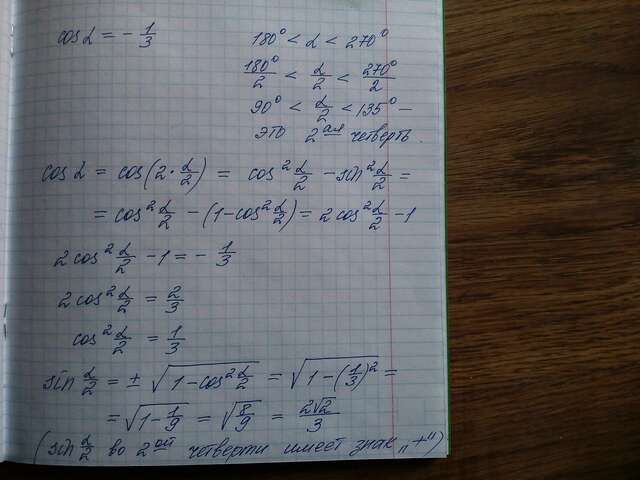 cos α = - 1/3
180° < α < 270°
180°/2 < α/2 < 270°/2
90° < α/2 < 135° –
это 2ая четверть.
cos α = cos(2·α/2) = cos²α/2 - sin²α/2 =
= cos²α/2 - (1-cos²α/2) = 2cos²α/2 - 1
2cos²α/2 - 1 = - 1/3
2cos²α/2 = 2/3
cos²α/2 = 1/3
sin α/2 = ± √(1-cos²α/2) = √(1-(1/3)²) =
= √(1-1/9) = √(8/9) = 2√2/3
(sin α/2 во 2ой четверти имеет знак „+")